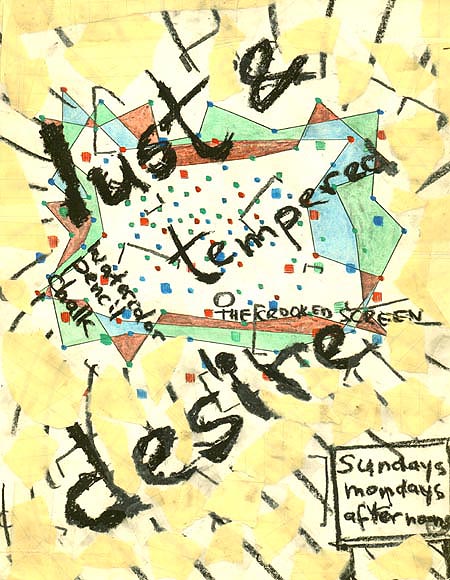 lust &
tempered
watercolor
pencil
chalk
THE CROOKED SCREEN
desire
Sundays
mondays
afternoons